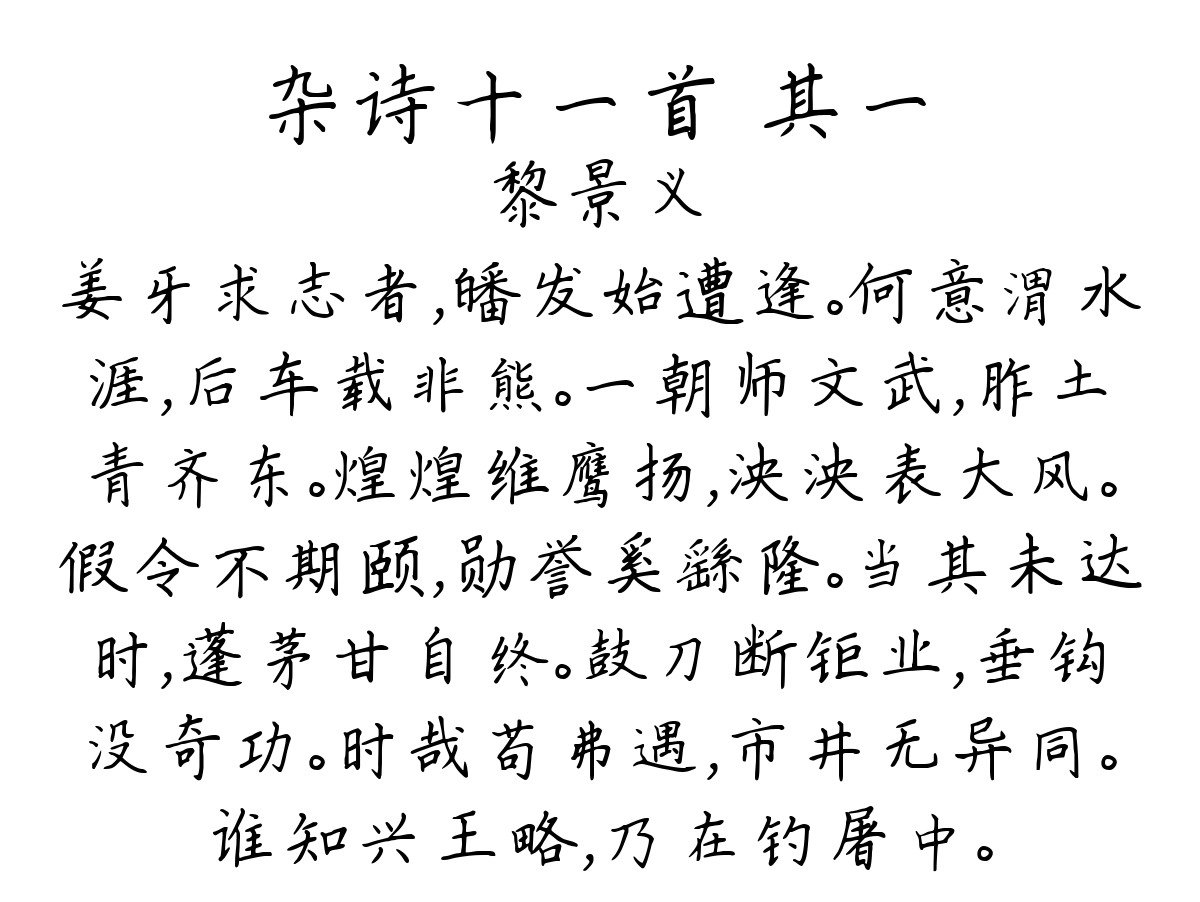 杂诗十一首 其一
黎景义
姜牙求志者,皤发始遭逢。何意渭水
涯,后车载非熊。一朝师文武,胙土
青齐东。煌煌维鹰扬,泱泱表大风。
假令不期颐,勋誉奚繇隆。当其未达
时,蓬茅甘自终。鼓刀断钜业,垂钩
没奇功。时哉苟弗遇,市井无异同。
谁知兴王略,乃在钓屠中。